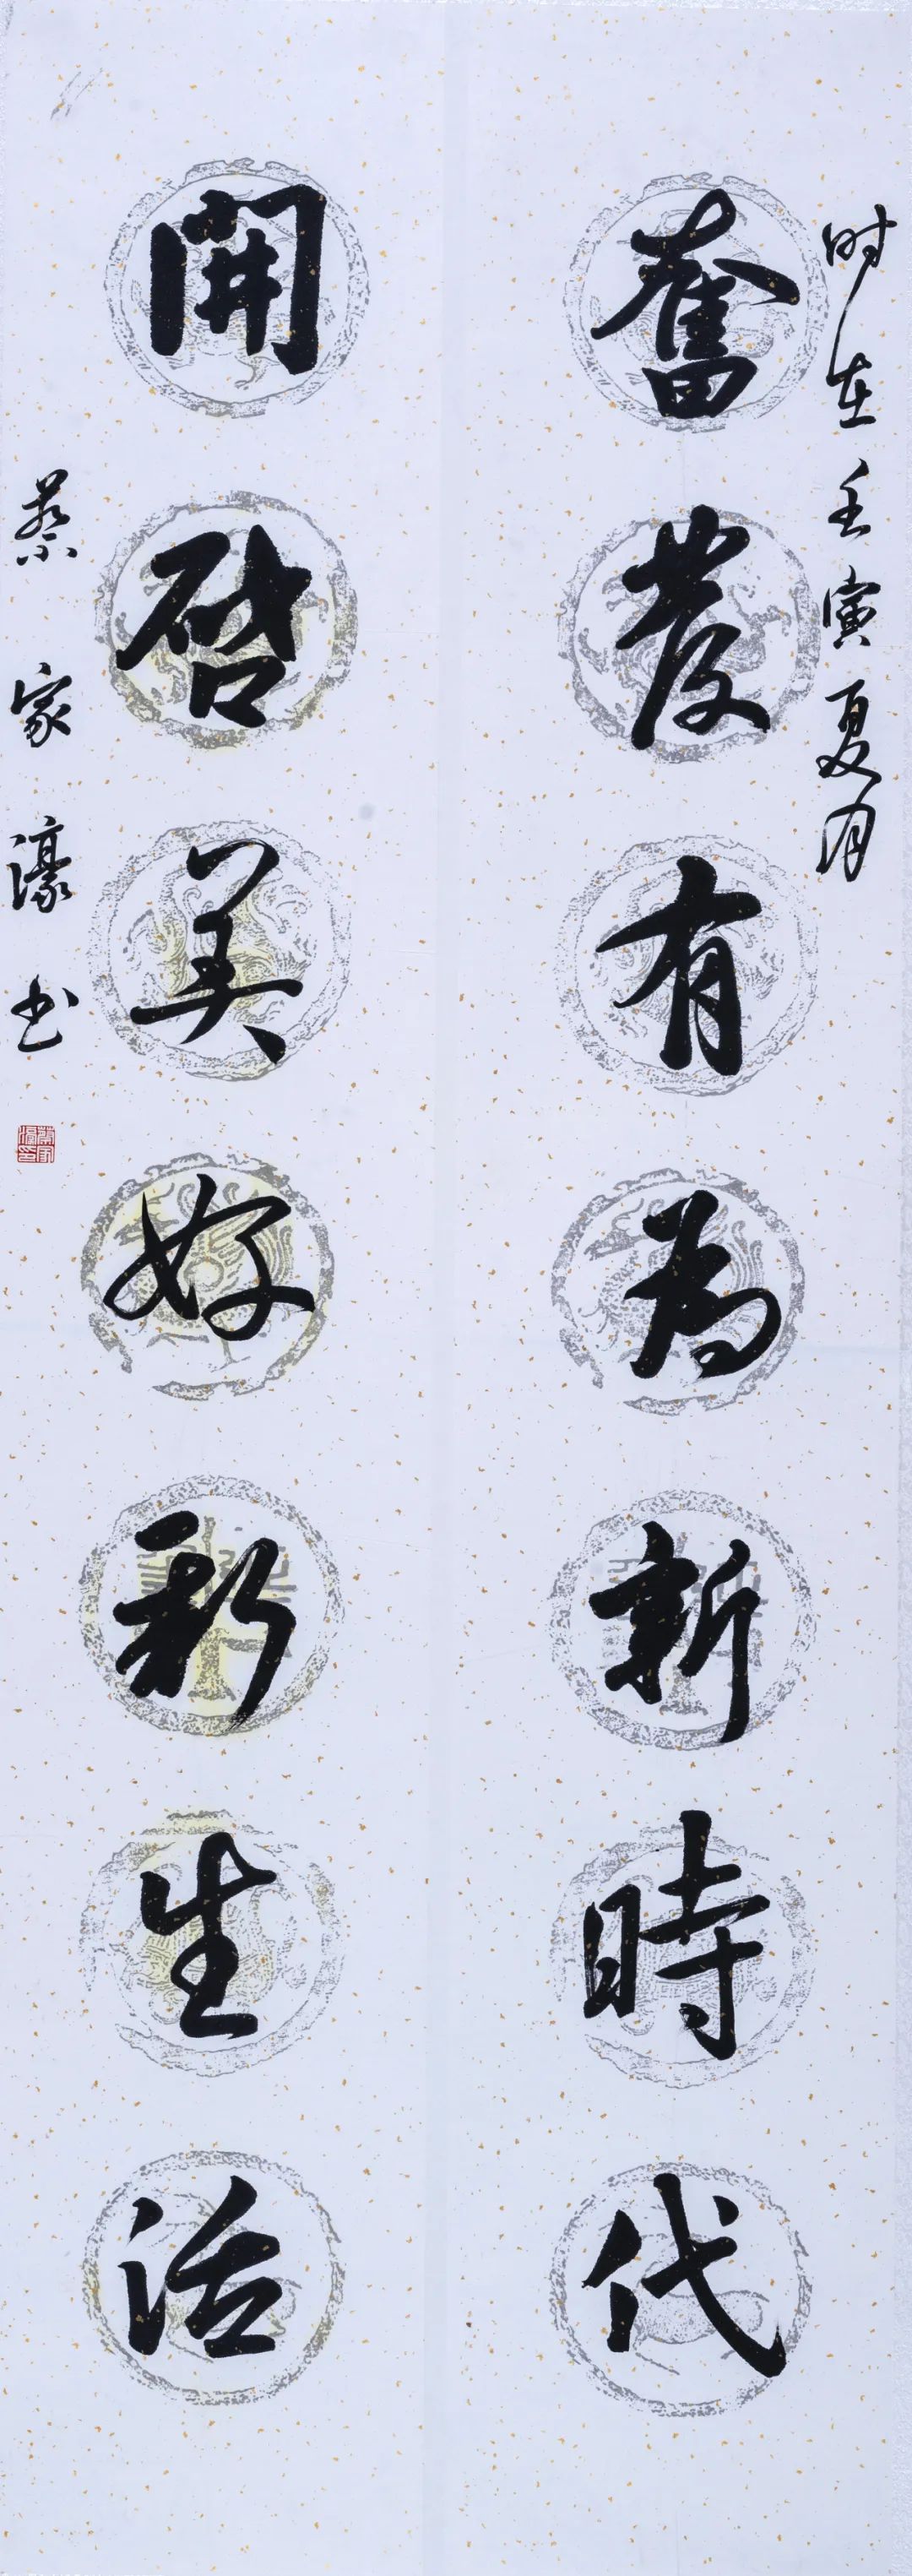 时在壬寅夏月
奮發有为新時代
開啓美好新生活
蔡家濠书